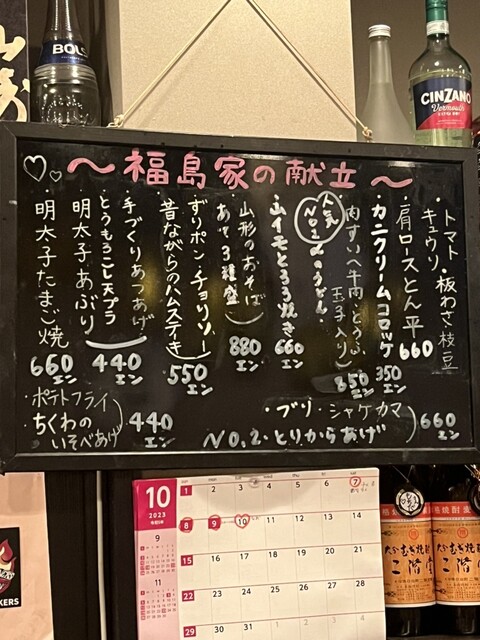 ～福島家の献立～
・トマト・板わさ・枝豆
キュウリ
・肩ロースとん平 660
・カニクリームコロッケ 350エン
・肉すい(牛肉、とうふ、玉子入り) 850エン
人気No.1
のうどん
・山イモとろろ焼き 660エン
・山形のおそば
あて3種盛 880エン
・ずりポン・チョリソー
昔ながらのハムステーキ 550エン
・手づくりあつあげ
・とうもろこし天プラ 440エン
・明太子あぶり
・明太子たまご焼 660エン
・ポテトフライ
・ちくわのいそべあげ 440エン
・ブリ・シャケカマ
No.2・とりからあげ 660エン
BOLS
CINZANO
Vermouth
10
2023
SUN MON TUE WED THU FRI SAT
1 2 3 4 5 6 7
8 9 10 11 12 13 14
15 16 17 18 19 20 21
22 23 24 25 26 27 28
29 30 31
9
11
KERS
本格焼酎
大分むぎ焼酎
二階堂
格焼酎
大分むぎ焼酎
二階堂